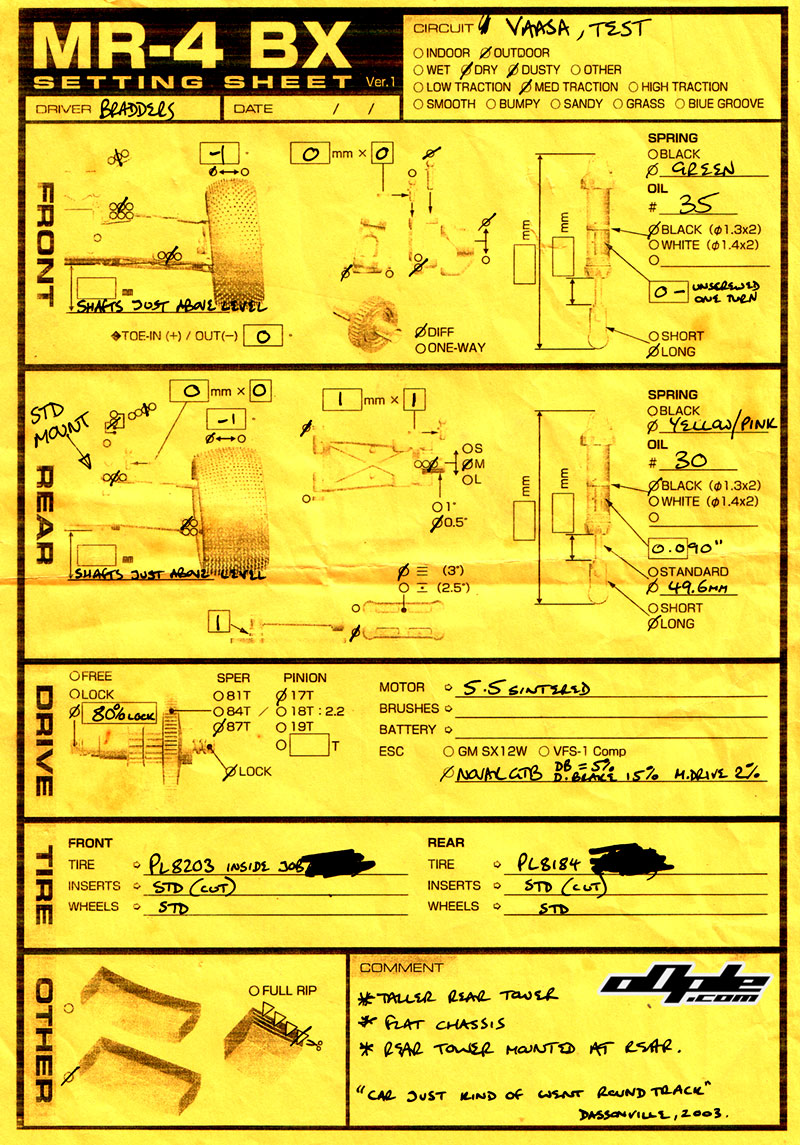 MR-4 BX
SETTING SHEET Ver.1
DRIVER BRADDERS DATE / /
CIRCUIT VAASA, TEST
INDOOR OUTDOOR
WET DRY DUSTY OTHER
LOW TRACTION MED TRACTION HIGH TRACTION
SMOOTH BUMPY SANDY GRASS BIUE GROOVE
FRONT
-1 °
0 mm × 0
SHAFTS JUST ABOVE LEVEL
TOE-IN (+) / OUT(−) 0 °
DIFF
ONE-WAY
mm
mm
SPRING
BLACK
GREEN
OIL
# 35
BLACK (φ1.3x2)
WHITE (φ1.4x2)
0 - UNSCREWED
ONE TURN
SHORT
LONG
REAR
STD
MOUNT
0 mm × 0
-1 °
SHAFTS JUST ABOVE LEVEL
1 mm × 1
S
M
L
1°
0.5°
(3°)
(2.5°)
1
mm
mm
SPRING
BLACK
YELLOW/PINK
OIL
# 30
BLACK (φ1.3x2)
WHITE (φ1.4x2)
0.090"
STANDARD
49.6MM
SHORT
LONG
DRIVE
FREE
LOCK
80% LOCK
LOCK
SPER PINION
81T 17T
84T / 18T : 2.2
87T 19T
T
MOTOR 5.5 SINTERED
BRUSHES
BATTERY
ESC GM SX12W VFS-1 Comp
NOVAK GTB DB = 5%
D.BRAKE 15% M.DRIVE 2%
TIRE
FRONT
TIRE PL8203 INSIDE JOB
INSERTS STD (CUT)
WHEELS STD
REAR
TIRE PL8184
INSERTS STD (CUT)
WHEELS STD
OTHER
FULL RIP
COMMENT
oOple.com
* TALLER REAR TOWER
* FLAT CHASSIS
* REAR TOWER MOUNTED AT REAR.
"CAR JUST KIND OF WENT ROUND TRACK"
DASSONVILLE, 2003.